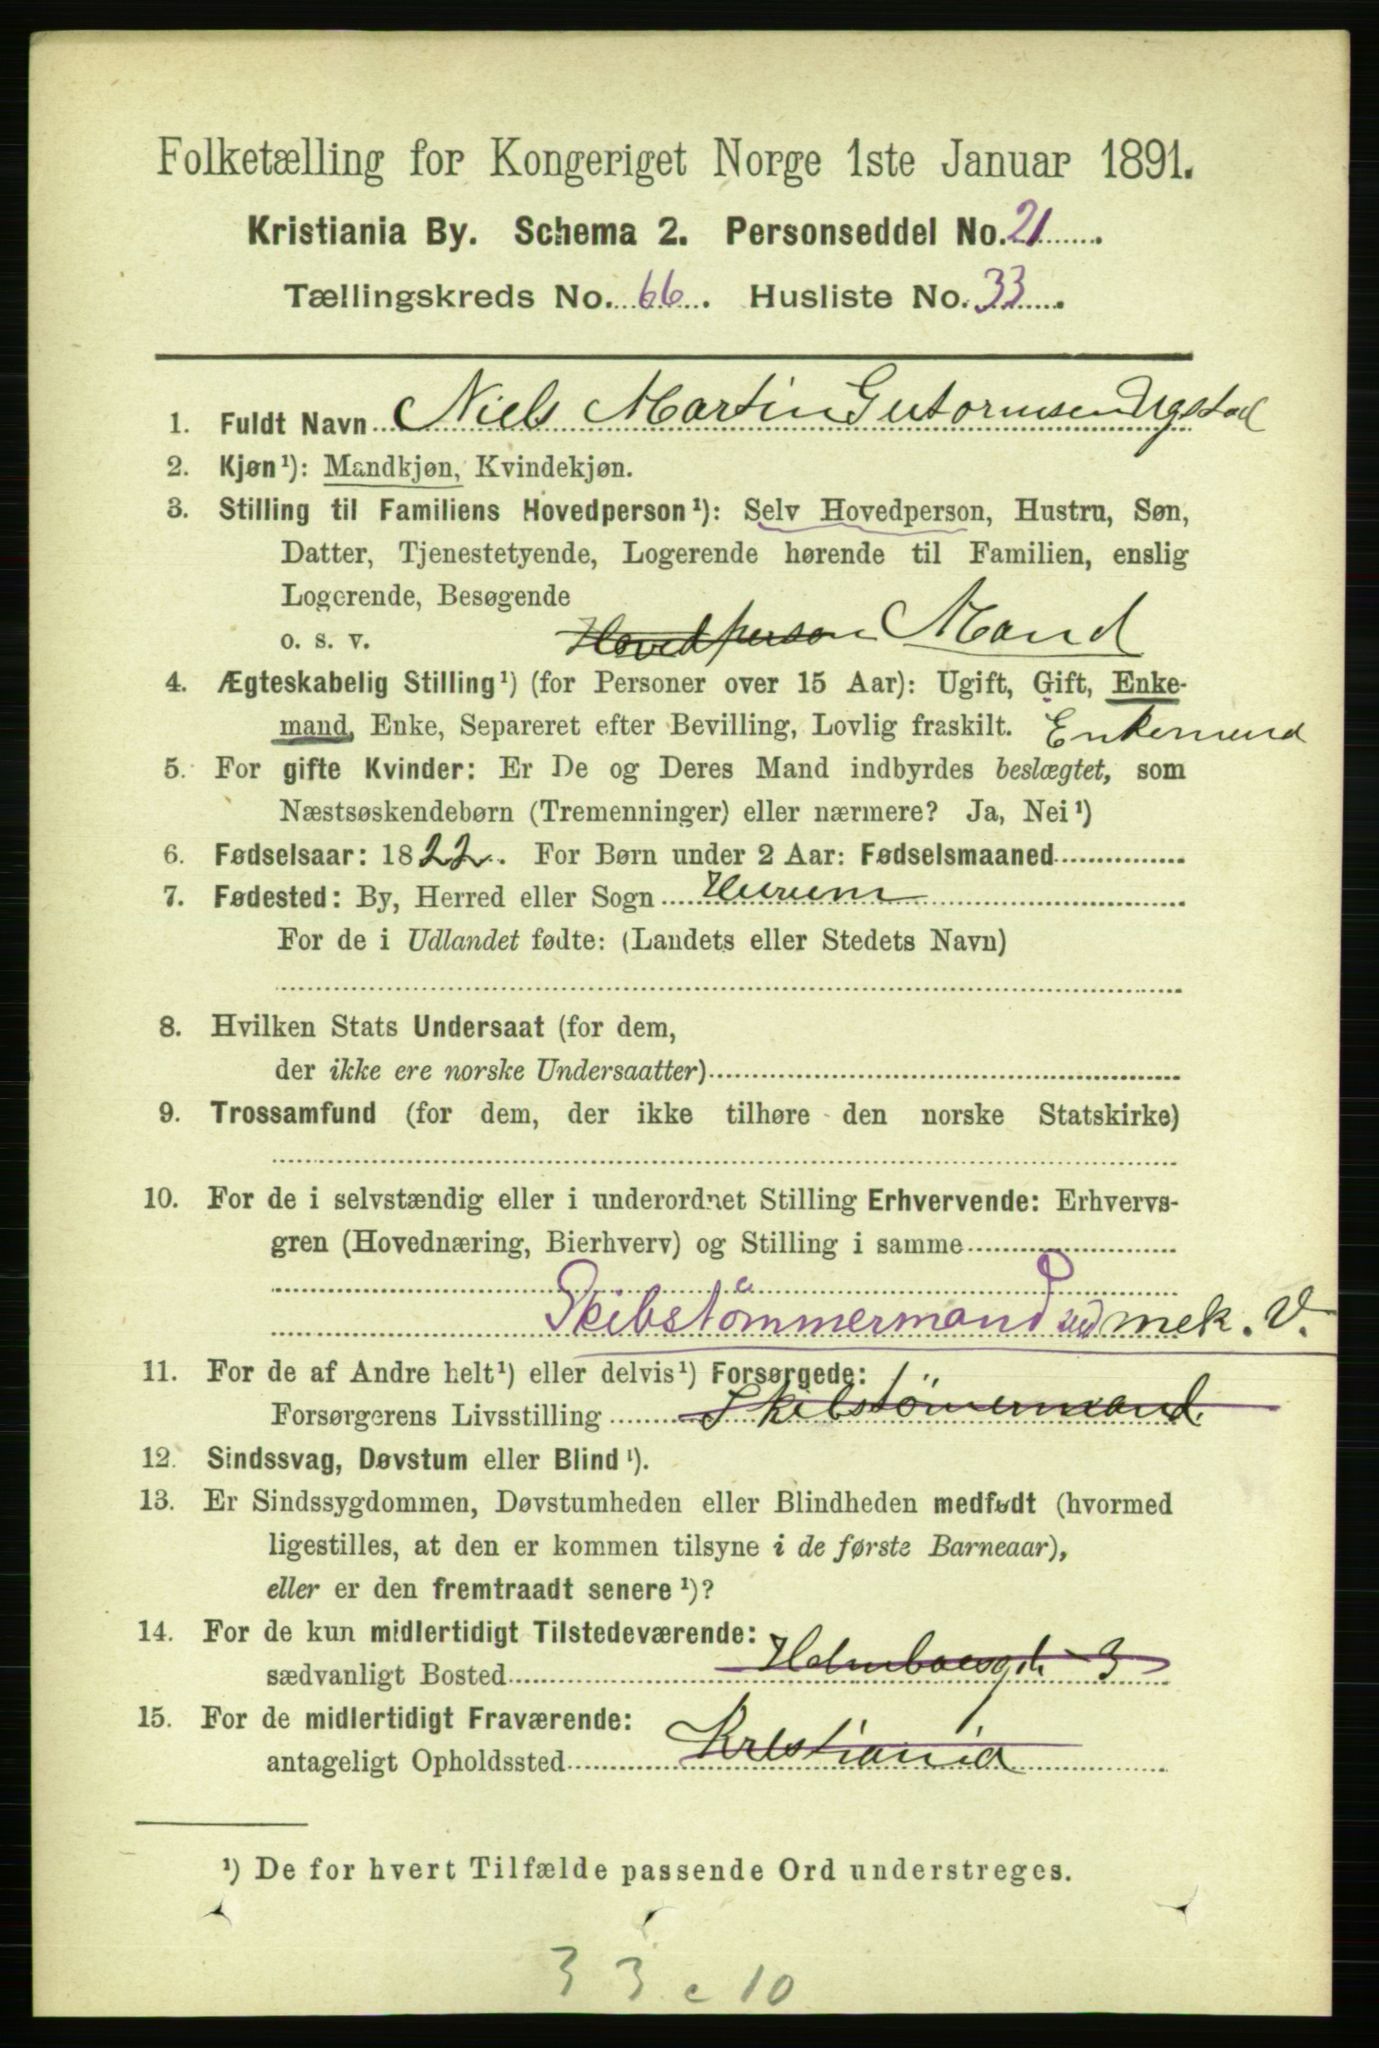 Folketælling for Kongeriget Norge 1ste Januar 1891.
Kristiania By. Schema 2. Personseddel No. 21
Tællingskreds No. 66. Husliste No. 33.
1. Fuldt Navn Niels Martin Gutormsen Ugstad
2. Kjøn¹): Mandkjøn, Kvindekjøn.
3. Stilling til Familiens Hovedperson¹): Selv Hovedperson, Hustru, Søn,
Datter, Tjenestetyende, Logerende hørende til Familien, enslig
Logerende, Besøgende
o. s. v. Hovedperson Mand
4. Ægteskabelig Stilling¹) (for Personer over 15 Aar): Ugift, Gift, Enke-
mand, Enke, Separeret efter Bevilling, Lovlig fraskilt. Enkemand
5. For gifte Kvinder: Er De og Deres Mand indbyrdes beslægtet, som
Næstsøskendebørn (Tremenninger) eller nærmere? Ja, Nei¹)
6. Fødselsaar: 1822. For Børn under 2 Aar: Fødselsmaaned
7. Fødested: By, Herred eller Sogn Hurum
For de i Udlandet fødte: (Landets eller Stedets Navn)
8. Hvilken Stats Undersaat (for dem,
der ikke ere norske Undersaatter)
9. Trossamfund (for dem, der ikke tilhøre den norske Statskirke)
10. For de i selvstændig eller i underordnet Stilling Erhvervende: Erhvervs-
gren (Hovednæring, Bierhverv) og Stilling i samme
Skibstömmermand ved mek. V.
11. For de af Andre helt¹) eller delvis¹) Forsørgede:
Forsørgerens Livsstilling Skibstömermand
12. Sindssvag, Døvstum eller Blind¹).
13. Er Sindssygdommen, Døvstumheden eller Blindheden medfødt (hvormed
ligestilles, at den er kommen tilsyne i de første Barneaar),
eller er den fremtraadt senere¹)?
14. For de kun midlertidigt Tilstedeværende:
sædvanligt Bosted Holmboesgd. 3
15. For de midlertidigt Fraværende:
antageligt Opholdssted Kristiania
¹) De for hvert Tilfælde passende Ord understreges.
33 c 10